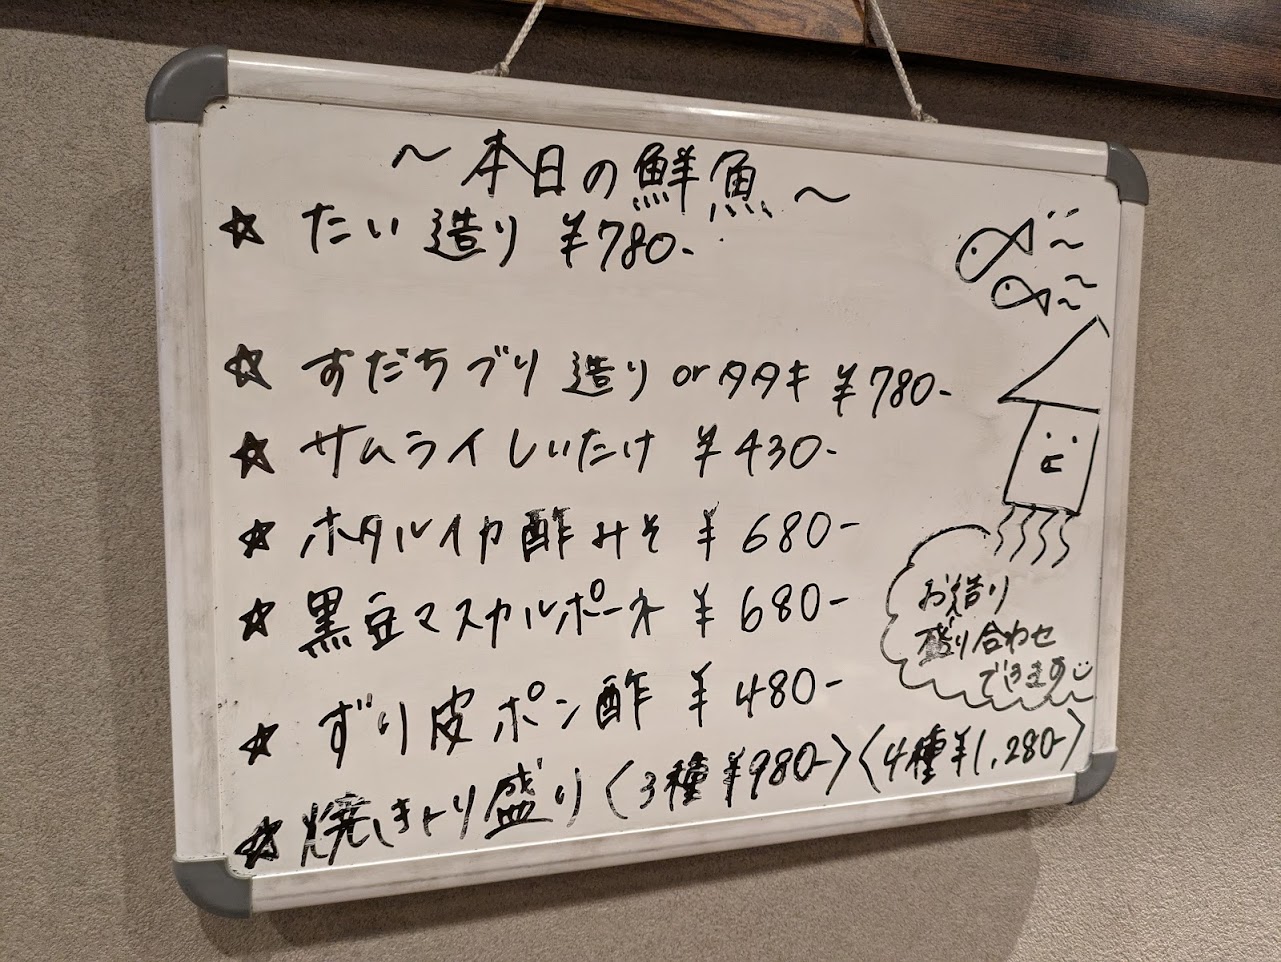 ～本日の鮮魚～
☆ たい 造り ¥780-
☆ すだちブリ 造り or タタキ ¥780-
☆ サムライしいたけ ¥430-
☆ ホタルイカ酢みそ ¥680-
☆ 黒豆マスカルポーネ ¥680-
☆ ずり皮ポン酢 ¥480-
☆ 焼きとり盛り〈3種¥980-〉〈4種¥1,280-〉
お造り
盛り合わせ
できます